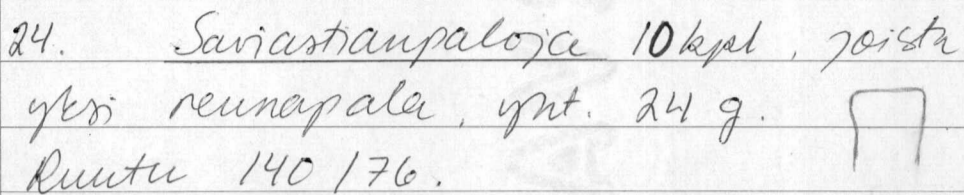 24. Saviastianpaloja 10 kpl, joista
yksi reunapala, yht. 24 g.
Ruutu 140/76.